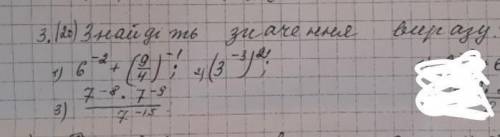 3. (2б) Знайдіть значення виразу.
1) 6⁻² + (9/4)⁻¹; 2) (3⁻³)²;
3) 7⁻⁸ · 7⁻⁹ / 7⁻¹⁵.